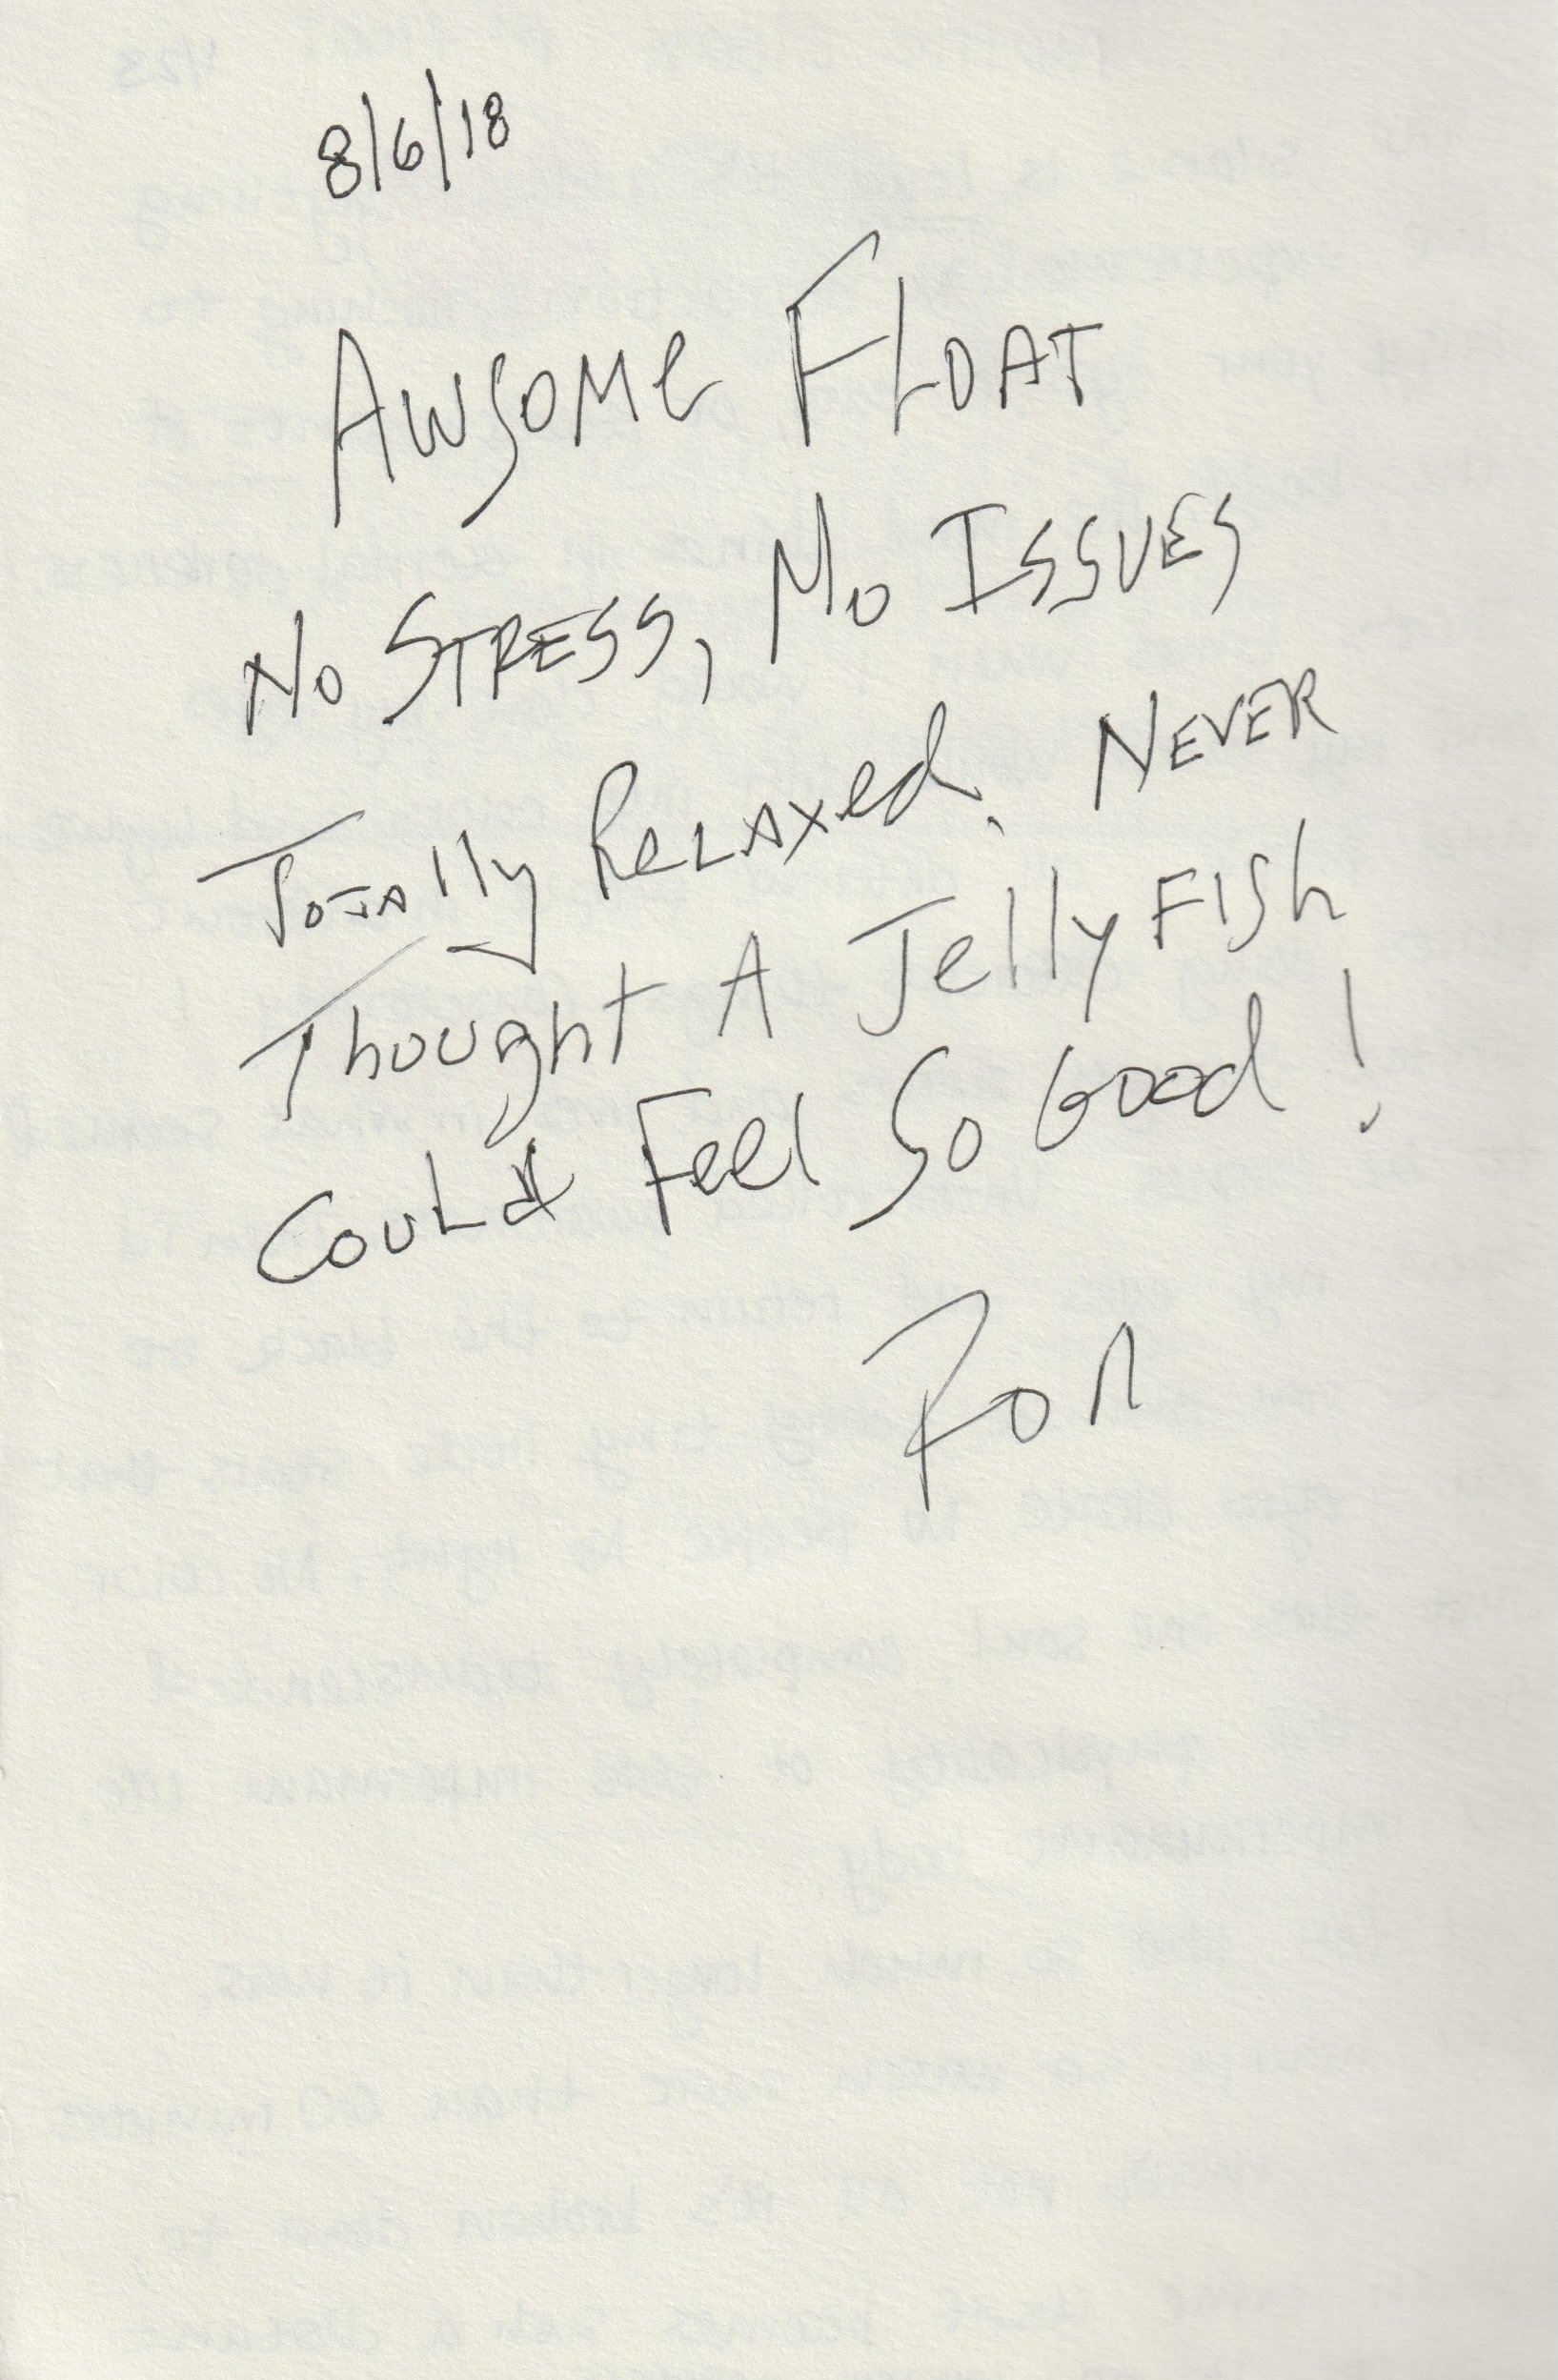 8/6/18
AWSOMe FLOAT
No STRESS, No ISSUES
ToTAlly ReLAxed. NEVER
Thought A JellyFISh
CouLd Feel So Good!
Ron